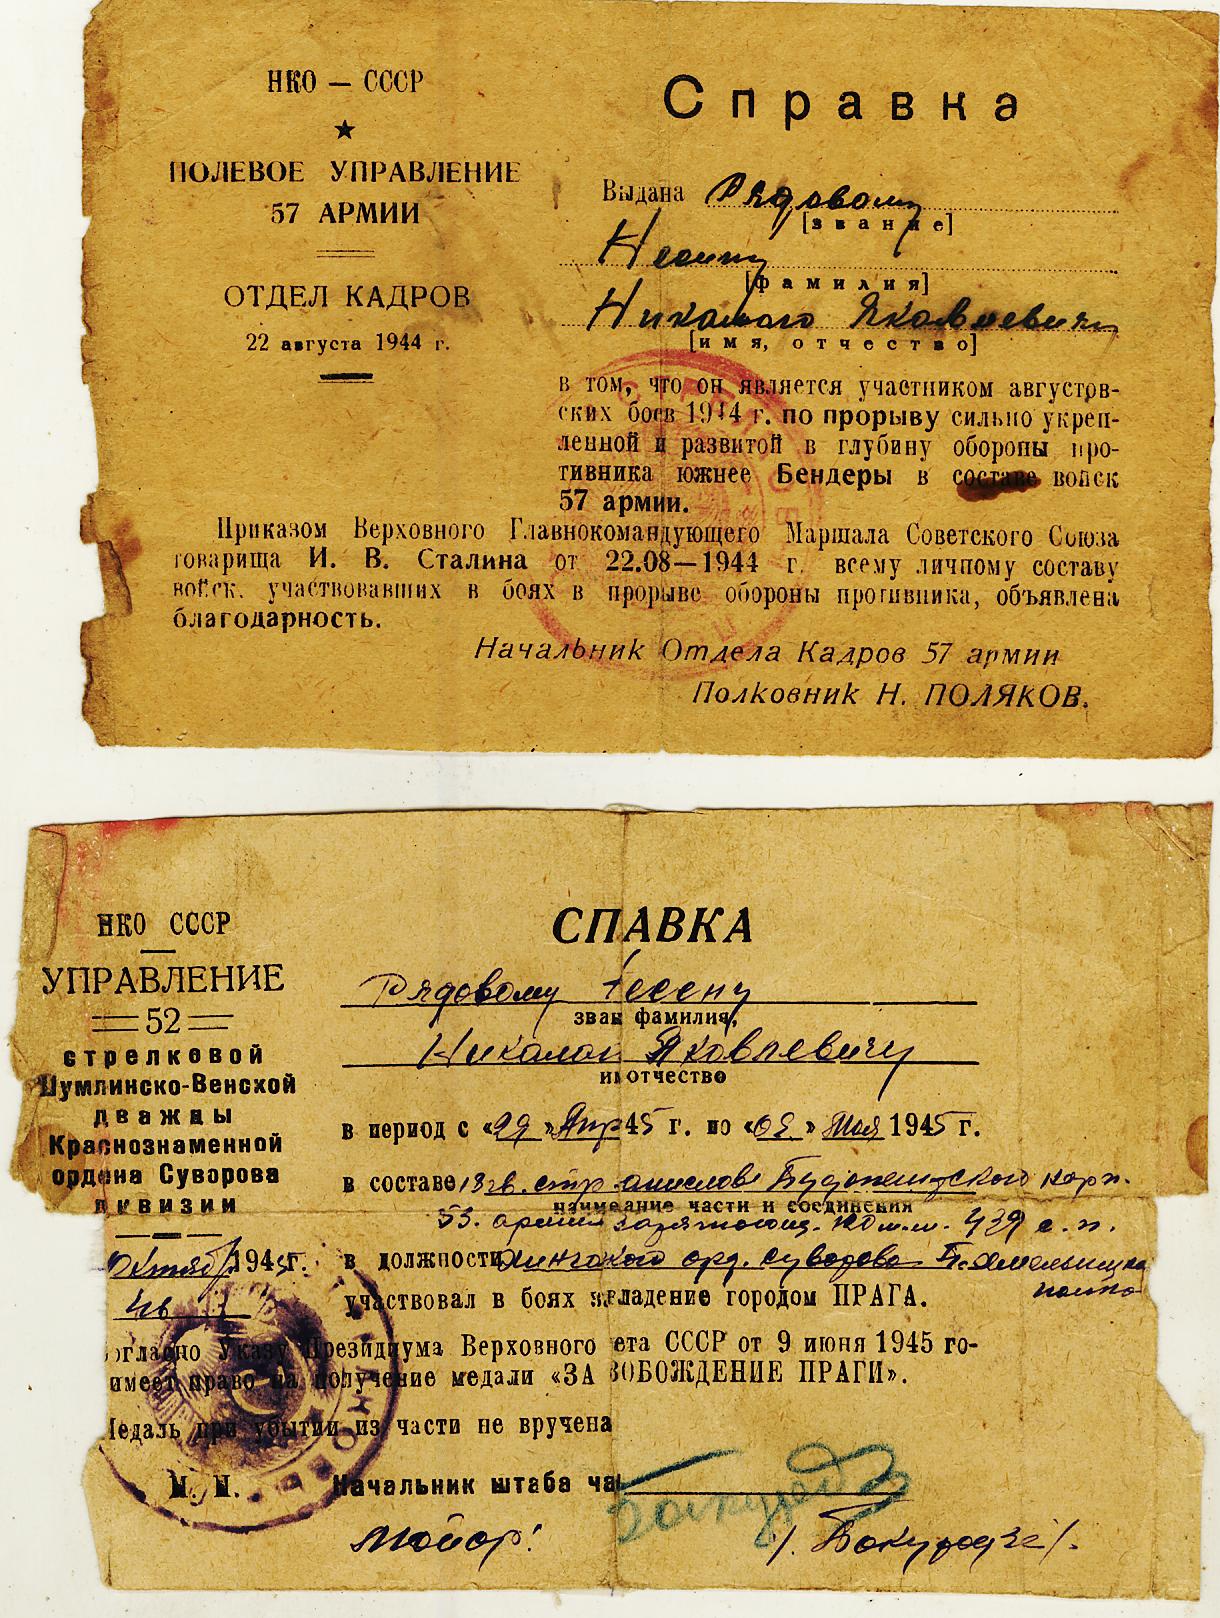 НКО — СССР
★
ПОЛЕВОЕ УПРАВЛЕНИЕ
57 АРМИИ
ОТДЕЛ КАДРОВ
22 августа 1944 г.
Справка
Выдана Рядовому
[звание]
[фамилия]
Николаю Яковлевичу
[имя, отчество]
в том, что он является участником августов-
ских боев 1944 г. по прорыву сильно укреп-
ленной и развитой в глубину обороны про-
тивника южнее Бендеры в составе войск
57 армии.
Приказом Верховного Главнокомандующего Маршала Советского Союза
товарища И. В. Сталина от 22.08—1944 г. всему личному составу
войск, участвовавших в боях в прорыве обороны противника, объявлена
благодарность.
Начальник Отдела Кадров 57 армии
Полковник Н. ПОЛЯКОВ.
НКО СССР
УПРАВЛЕНИЕ
52
стрелковой
Шумлинско-Венской
дважды
Краснознаменной
ордена Суворова
дивизии
1945 г.
СПАВКА
Рядовому
зван фамилия,
Николаю Яковлевичу
им отчество
в период с «29» Апр 45 г. по «02» Мая 1945 г.
в составе 18 гв. стр. Будопештского корп.
наименание части и соединения
53. армии 439 с. п.
в должности орд. Суворова
участвовал в боях владение городом ПРАГА.
огласно Указу Президиума Верховного ета СССР от 9 июня 1945 го-
имеет право на получение медали «ЗА ВОБОЖДЕНИЕ ПРАГИ».
Медаль при убытии из части не вручена
М. П. Начальник штаба ча
Майор: